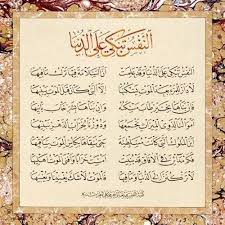 النفس تبكي على الدنيا
النفس تبكي على الدنيا وقد علمت ان السلامة فيها ترك ما فيها
لا دار للمرء بعد الموت يسكنها الا التي كان قبل الموت بانيها
فان بناها بخير طاب مسكنه وان بناها بشر خاب بانيها
اموالنا لذوي الميراث نجمعها ودورنا لخراب الدهر نبنيها
فكم مدائن في الآفاق قد بنيت امست خرابا وافنى الموت اهليها
لا تركنن الى الدنيا وما فيها فالموت لا شك يفنينا ويفنيها